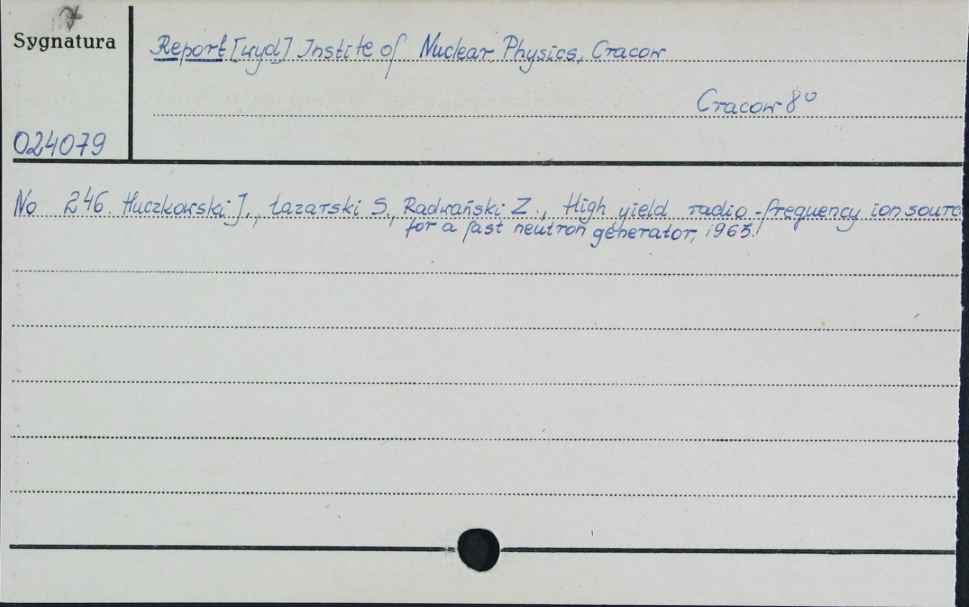 Sygnatura
Report [wyd.] Institte of Nuclear Physics, Cracow
Cracow 8°
024079
No 246. Huczkowski J., Łazarski S., Radwański Z., High yield radio-frequency ion sourc
for a fast neutron generator, 1963.